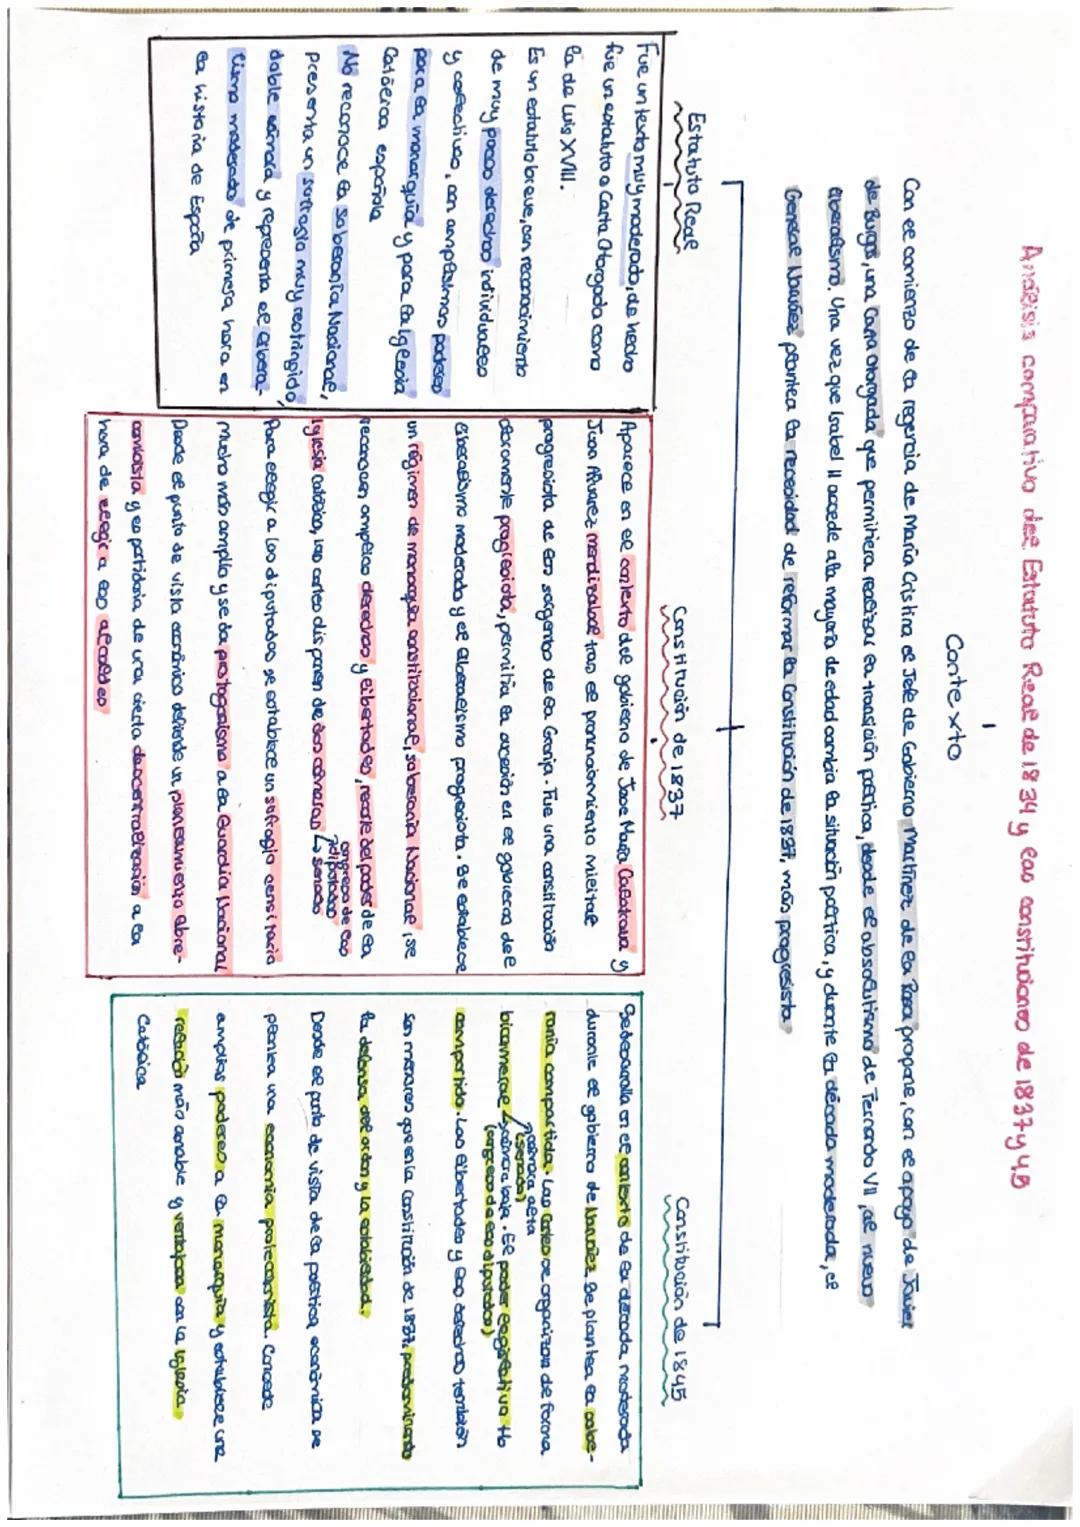 Análisis comparativo del Estatuto Real de 1834 y las constituciones de 1837 y 45
Contexto
Con el comienzo de la regencia de María Cristina el Jefe de Gobierno Martínez de la Rosa, propone, con el apoyo de Javier
de Burgos, una Carta otorgada que permitiera realizar la transición política, desde el absolutismo de Fernando VII, al nuevo
liberalismo. Una vez que Isabel II accede a la mayoría de edad cambia la situación política, y durante la década moderada, el
General Narváez plantea la necesidad de reformar la Constitución de 1837, más progresista
Estatuto Real
Fue un texto muy moderado, de hecho
fue un estatuto o Carta Otorgada como
la de Luis XVIII.
Es un estatuto breve, con reconocimiento
de muy pocos derechos individuales
y colectivos, con amplísimos poderes
para la monarquía y para la Iglesia
Católica española
No reconoce la soberanía Nacional,
presenta un sufragio muy restringido,
doble cámara y representa el libera-
lismo moderado de primera hora en
la historia de España
Constitución de 1837
Aparece en el contexto del gobierno de Jose María Calatrava y
Juan Álvarez mendizabal tras el pronunciamiento militar
progresista de los sargentos de la Granja. Fue una constitución
claramente progresista, permitía la sucesión en el gobierno del
liberalismo moderado y el liberalismo progresista. Se establece
un régimen de monarquía constitucional, soberanía Nacional, se
reconocen amplios derechos y libertades, recorte del poder de la
Iglesia católica, las cortes disponen de dos cámaras
congreso de los
diputados
senado
Para elegir a los diputados se establece un sufragio censitario
mucho más amplio y se da protagonismo a la Guardia Nacional
Desde el punto de vista económico defiende un planteamiento libre-
cambista y es partidaria de una cierta descentralización a la
hora de elegir a los alcaldes
Constitución de 1845
Se desarrolla en el contexto de la década moderada
durante el gobierno de Narváez. Se plantea la sobe-
ranía compartida. Las Cortes se organizan de forma
bicameral
cámara alta
(senado)
cámara baja.
(congreso de los diputados)
El poder legislativo
compartido. Las libertades y los derechos también
son menores que en la Constitución de 1837, predominando
la defensa del orden y la estabilidad.
Desde el punto de vista de la política económica se
plantea una economía proteccionista. Concede
amplios poderes a la monarquía y establece una
relación más amable y ventajosa con la Iglesia
Católica